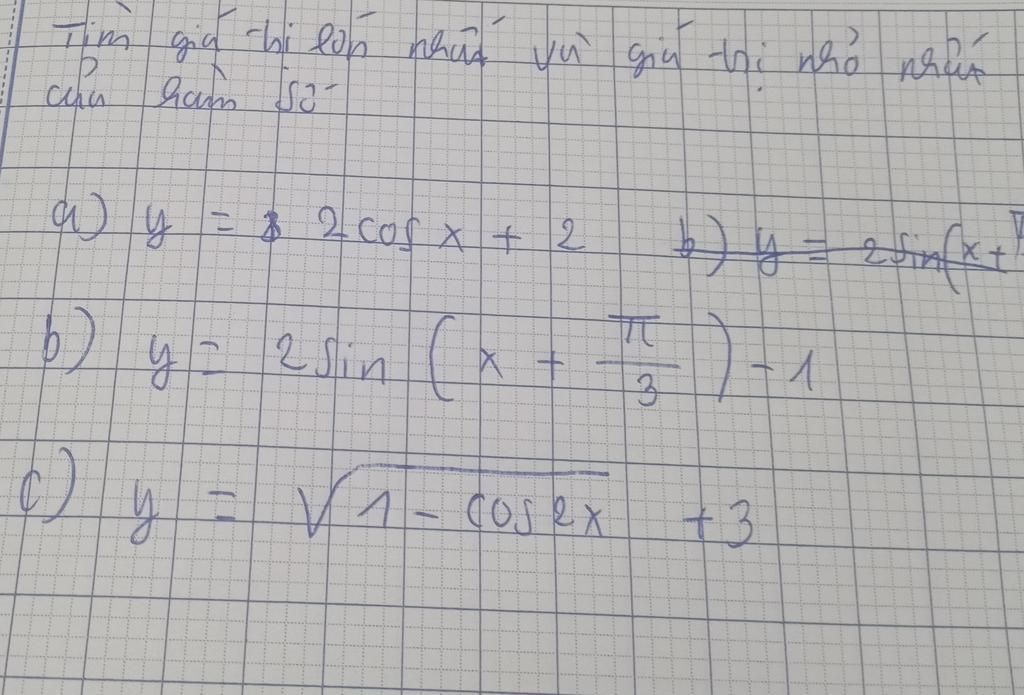 Tìm giá trị lớn nhất và giá trị nhỏ nhất
của hàm số
a) y = 2 cos x + 2 b) y = 2 sin(x +
b) y = 2 sin (x + π/3) - 1
c) y = √(1 - cos2x) + 3